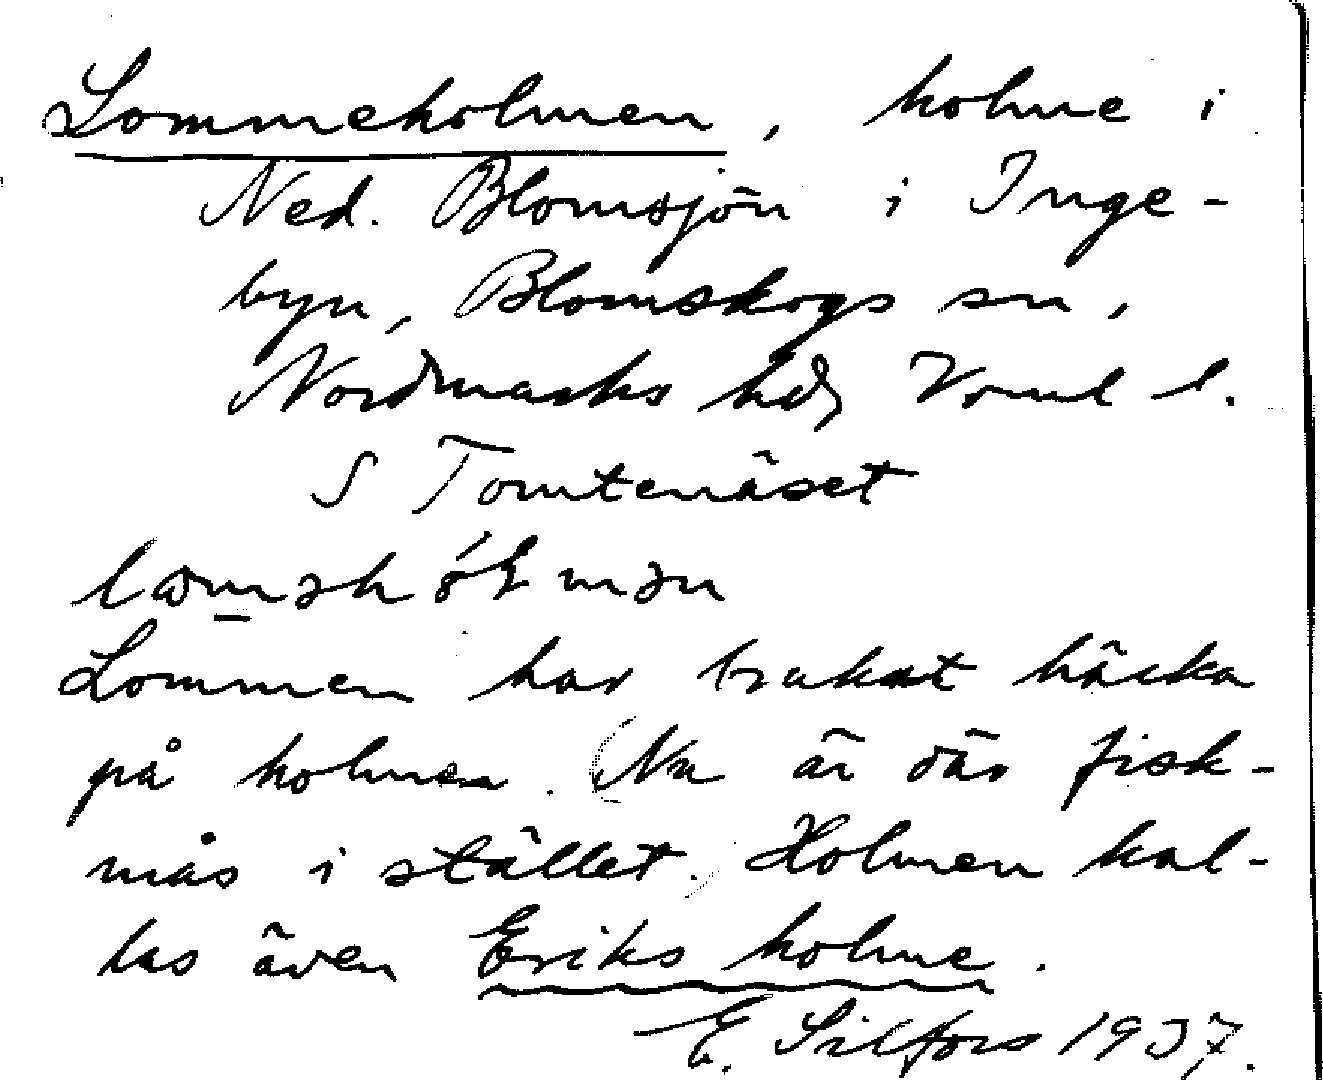 Lommeholmen, holme i
Ned. Blomsjön i Inge-
byn, Blomskogs sn,
Nordmarks hd, Vrml l.
S Tomtenäset
Lommen har brukat häcka
på holmen. (Nu är där fisk-
mås i stället.) Holmen kal-
las även Eriks holme.
E. Silfors 1937.